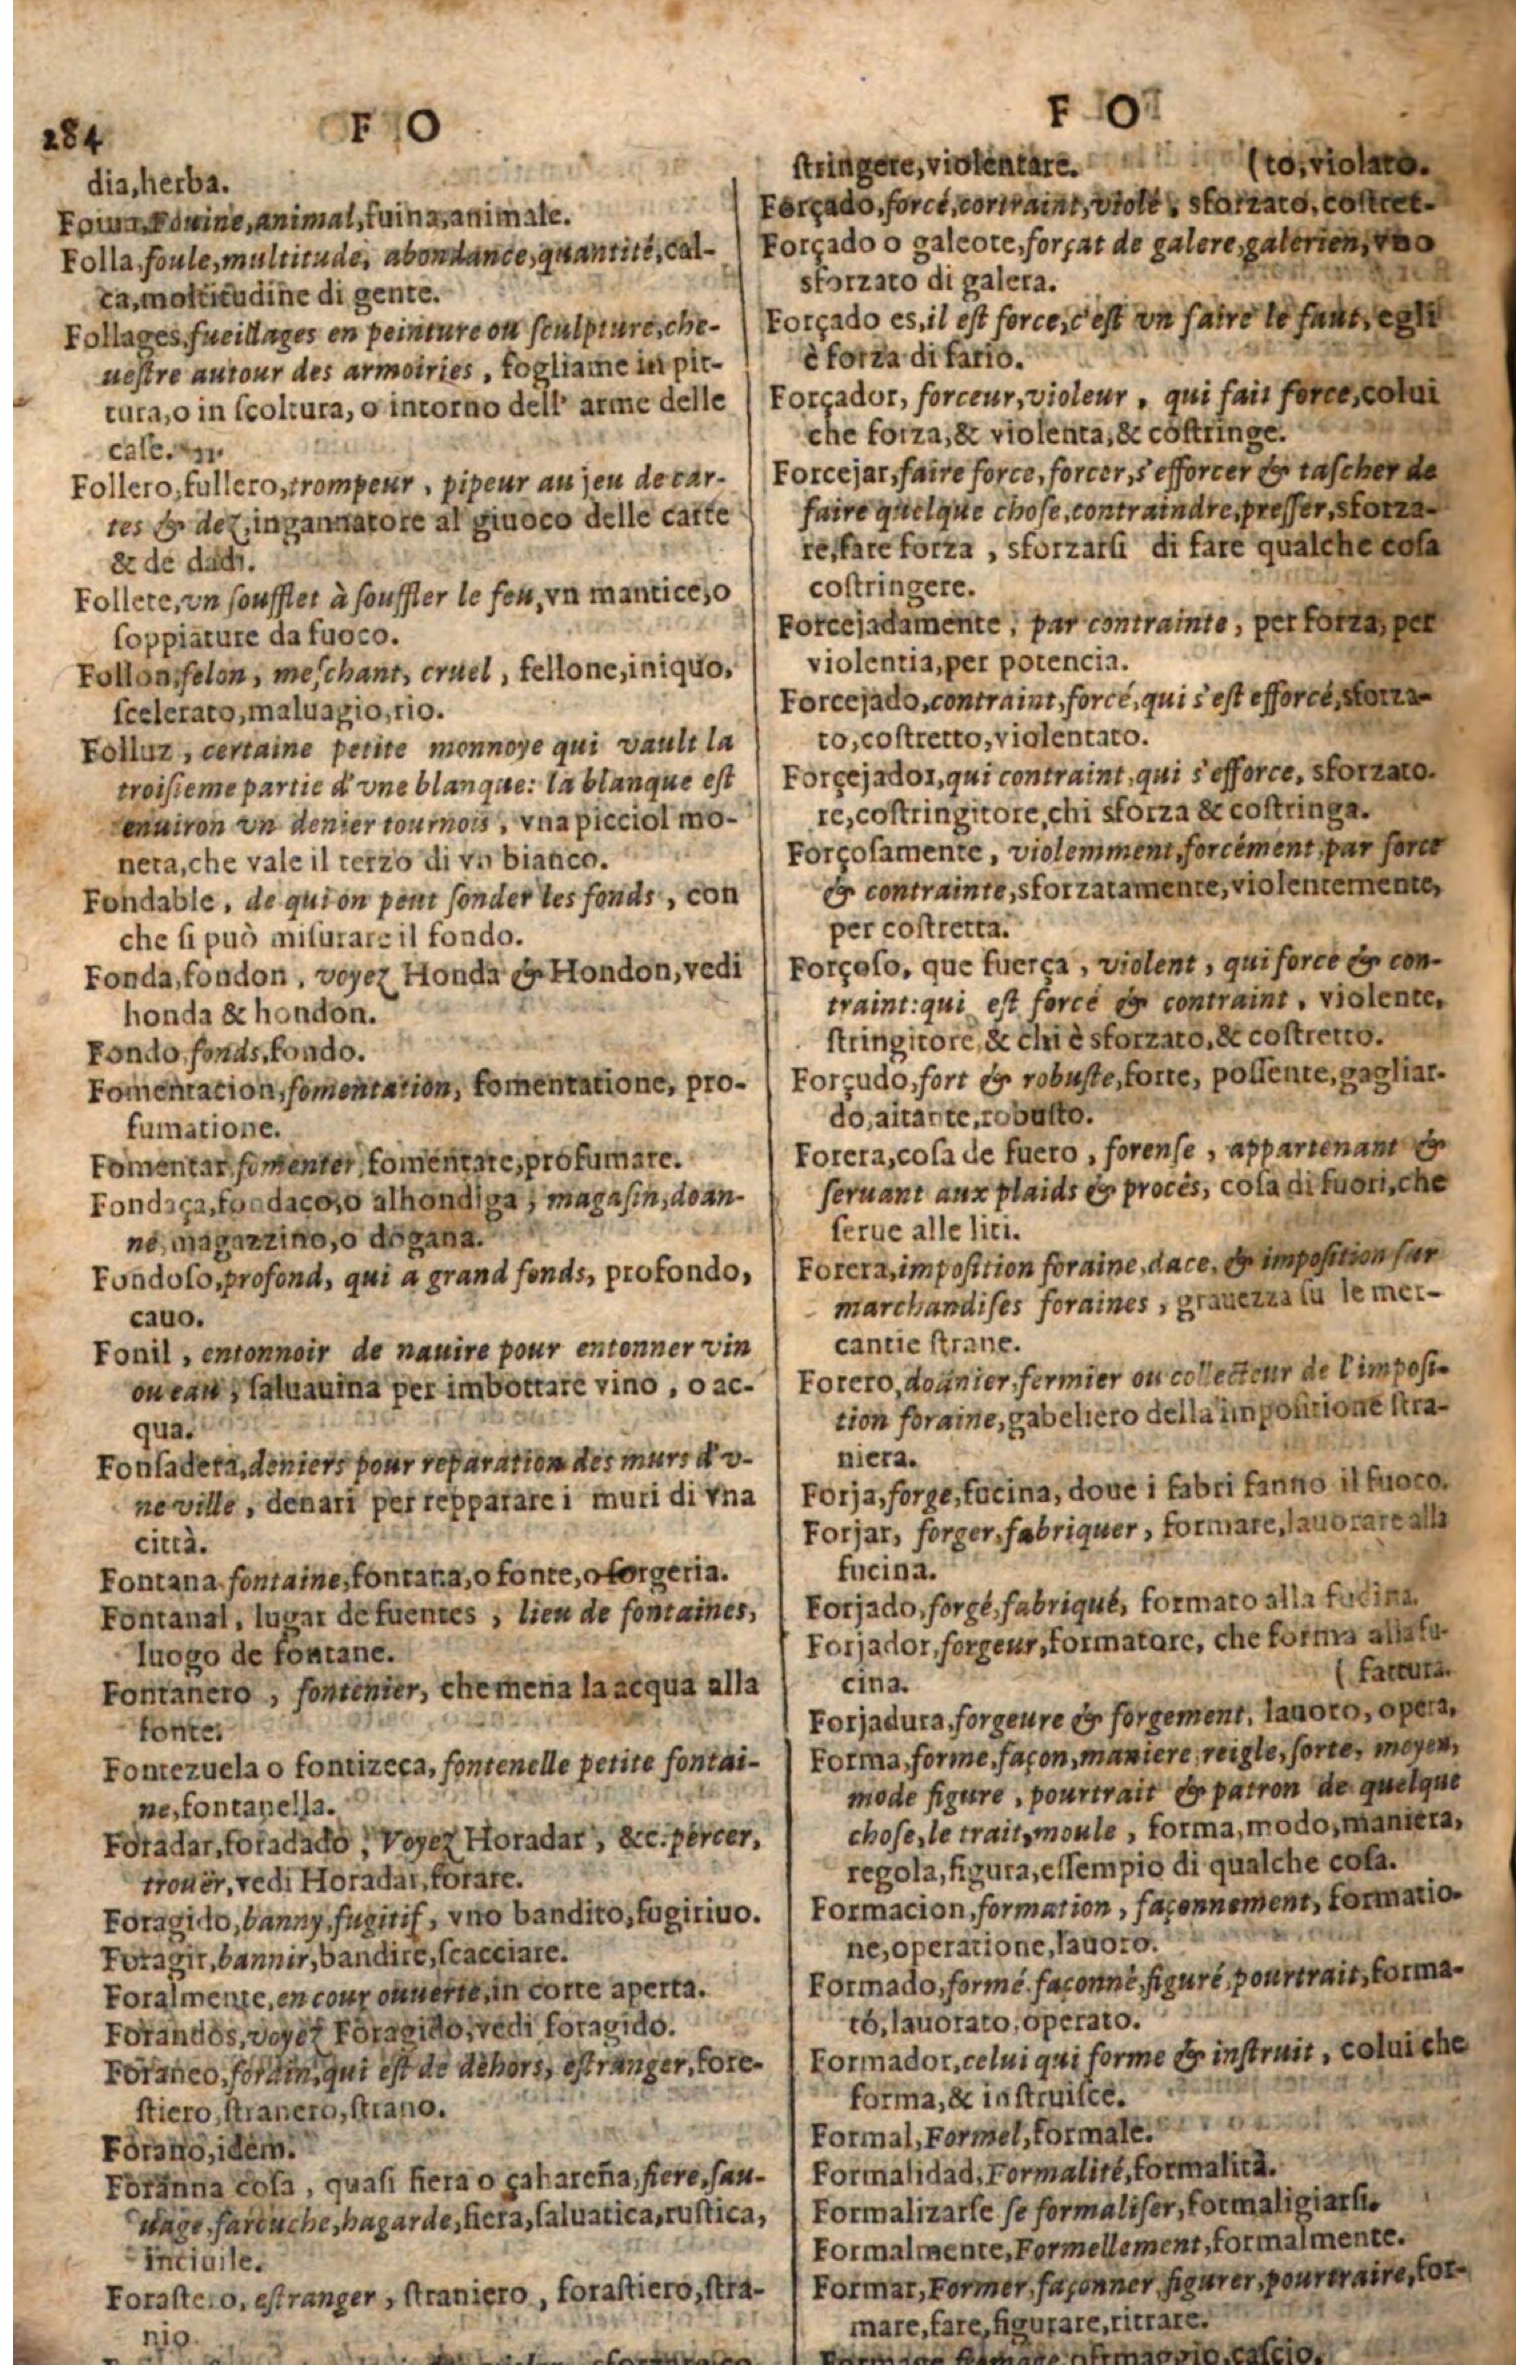 284
F O
dia,herba.
Foina,Fouine,animal,fuina,animale.
Folla,foule,multitude, abondance,quantité,cal-
ca,moltitudine di gente.
Follages,fueillages en peinture ou sculpture,che-
uestre autour des armoiries, fogliame in pit-
tura,o in scoltura, o intorno dell' arme delle
case.
Follero,fullero,trompeur, pipeur au jeu de car-
tes & dez,ingannatore al giuoco delle carte
& de dadi.
Follete,vn soufflet à souffler le feu,vn mantice,o
soppiature da fuoco.
Follon,felon, meschant, cruel, fellone,iniquo,
scelerato,maluagio,rio.
Folluz, certaine petite monnoye qui vault la
troisieme partie d'vne blanque: la blanque est
enuiron vn denier tournois, vna picciol mo-
neta,che vale il terzo di vn bianco.
Fondable, de qui on peut sonder les fonds, con
che si può misurare il fondo.
Fonda,fondon, voyez Honda & Hondon,vedi
honda & hondon.
Fondo,fonds,fondo.
Fomentacion,fomentation, fomentatione, pro-
fumatione.
Fomentar,fomenter,fomentare,profumare.
Fondaça,fondaco,o alhondiga, magasin,doan-
ne,magazzino,o dogana.
Fondoso,profond, qui a grand fonds, profondo,
cauo.
Fonil, entonnoir de nauire pour entonner vin
ou eau, saluauina per imbottare vino, o ac-
qua.
Fonsadera,deniers pour reparation des murs d'v-
ne ville, denari per repparare i muri di vna
città.
Fontana,fontaine,fontana,o fonte,o sorgeria.
Fontanal, lugar de fuentes, lieu de fontaines,
luogo de fontane.
Fontanero, fontenier, che mena la acqua alla
fonte.
Fontezuela o fontizeca, fontenelle petite fontai-
ne,fontanella.
Foradar,foradado, Voyez Horadar, &c.percer,
trouër,vedi Horadar,forare.
Foragido,banny,fugitif, vno bandito,fugitiuo.
Foragir,bannir,bandire,scacciare.
Foralmente,en cour ouuerte,in corte aperta.
Forandos,voyez Foragido,vedi foragido.
Foraneo,forain,qui est de dehors, estranger,fore-
stiero,stranero,strano.
Forano,idem.
Foranna cosa, quasi fiera o çahareña,fiere,sau-
uage,farouche,hagarde,fiera,saluatica,rustica,
inciuile.
Forastero, estranger, straniero, forastiero,stra-
nio.
F O
stringere,violentare. (to,violato.
Forçado,forcé,contraint,violé, sforzato,costret-
Forçado o galeote,forçat de galere,galerien,vno
sforzato di galera.
Forçado es,il est force,c'est vn faire le faut, egli
è forza di farlo.
Forçador, forceur,violeur, qui fait force,colui
che forza,& violenta,& costringe.
Forcejar,faire force,forcer,s'efforcer & tascher de
faire quelque chose,contraindre,presser,sforza-
re,fare forza, sforzarsi di fare qualche cosa
costringere.
Forcejadamente, par contrainte, per forza, per
violentia,per potencia.
Forcejado,contraint,forcé,qui s'est efforcé,sforza-
to,costretto,violentato.
Forçejador,qui contraint,qui s'efforce, sforzato-
re,costringitore,chi sforza & costringa.
Forçosamente, violemment,forcément,par force
& contrainte,sforzatamente,violentemente,
per costretta.
Forçoso, que fuerça, violent, qui force & con-
traint:qui est forcé & contraint, violente,
stringitore,& chi è sforzato,& costretto.
Forçudo,fort & robuste,forte, possente,gagliar-
do,aitante,robusto.
Forera,cosa de fuero, forense, appartenant &
seruant aux plaids & procês, cosa di fuori,che
serue alle liti.
Forera,imposition foraine,dace, & imposition sur
marchandises foraines, grauezza su le mer-
cantie strane.
Forero,doünier,fermier ou collecteur de l'imposi-
tion foraine,gabeliero della impositione stra-
niera.
Forja,forge,fucina, doue i fabri fanno il fuoco.
Forjar, forger,fabriquer, formare,lauorare alla
fucina.
Forjado,forgé,fabriqué, formato alla fucina.
Forjador,forgeur,formatore, che forma alla fu-
cina. (fattura.
Forjadura,forgeure & forgement, lauoro, opera,
Forma,forme,façon,maniere,reigle,sorte, moyen,
mode figure, pourtrait & patron de quelque
chose,le trait,moule, forma,modo,maniera,
regola,figura,essempio di qualche cosa.
Formacion,formation, façonnement, formatio-
ne,operatione,lauoro.
Formado,formé,façonné,figuré,pourtrait,forma-
tó,lauorato,operato.
Formador,celui qui forme & instruit, colui che
forma,& instruisce.
Formal,Formel,formale.
Formalidad,Formalité,formalità.
Formalizarse se formaliser,formaligiarsi.
Formalmente,Formellement,formalmente.
Formar,Former,façonner,figurer,pourtraire,for-
mare,fare,figurare,ritrare.
Formage,fromage,ofrmaggio,cascio.